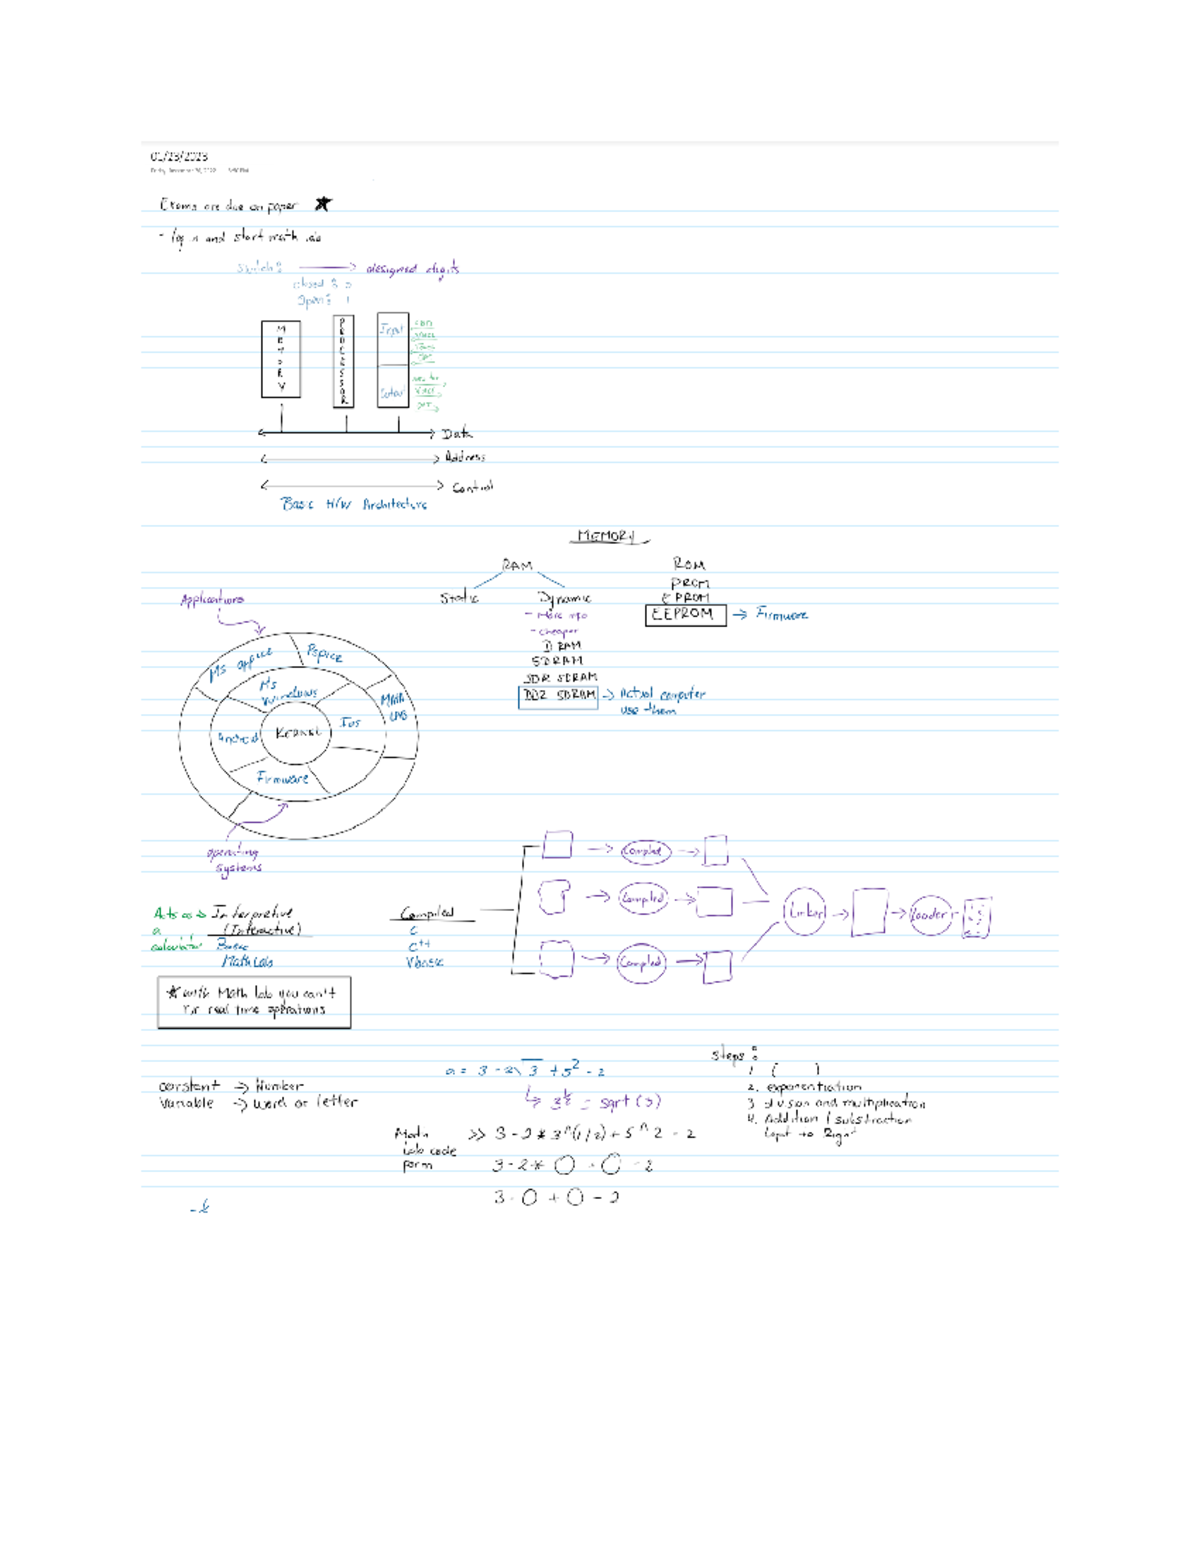 01/23/2023
Exams are due on paper ★
- log n and start math lab
Switch: → assigned digits
closed: 0
Open: 1
MEMORY
PROCESSSOR
Input
Output
Data
Address
Control
Basic H/W Architecture
MEMORY
RAM
ROM
PROM
EPROM
EEPROM → Firmware
Static
Dynamic
- More info
- cheaper
DRAM
SDRAM
SDR SDRAM
DDR SDRAM → Actual computer
use them
Applications
Ms office
Pspice
Math
LAB
Ms
Windows
Ios
Android
KERNEL
Firmware
operating
systems
Acts as → Interpretive
a (Interactive)
calculator Basic
Math Lab
Compiled
C
C++
Vbasic
→ Compiled →
→ Compiled →
→ Compiled →
Linker → → loader →
★ with Math lab you can't
run real time operations
constant → Number
Variable → word or letter
a = 3 - 2√3 + 5² - 2
↳ 3^½ = sqrt(3)
Math
Lab code
form
>> 3 - 2 * 3^(1/2) + 5^2 - 2
3 - 2 * ○ + ○ - 2
3 - ○ + ○ - 2
steps:
1. ( )
2. exponentiation
3 division and multiplication
4. Addition / substraction
Lept to Right